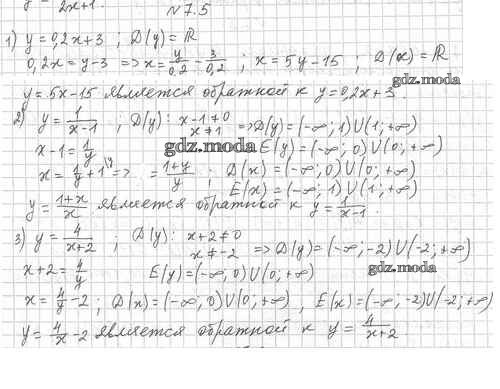 y = 2x+1.
N 7.5
1) y = 0,2x+3 ; D(y) = ℝ
0,2x = y-3 => x = y/0,2 - 3/0,2 ; x = 5y-15 ; D(x) = ℝ
gdz.moda
y = 5x-15 является обратной к y = 0,2x+3.
2) y = 1/(x-1) ; D(y): x-1≠0
x≠1 => D(y) = (-∞; 1)∪(1; +∞)
x-1 = 1/y gdz.moda E(y) = (-∞; 0)∪(0; +∞)
x = 1/y + 1\y => = (1+y)/y ; D(x) = (-∞; 0)∪(0; +∞)
E(x) = (-∞; 1)∪(1; +∞)
y = (1+x)/x является обратной к y = 1/(x-1).
3) y = 4/(x+2) ; D(y): x+2≠0
x≠-2 => D(y) = (-∞; -2)∪(-2; +∞)
x+2 = 4/y E(y) = (-∞; 0)∪(0; +∞) gdz.moda
x = 4/y - 2 ; D(x) = (-∞; 0)∪(0; +∞), E(x) = (-∞; -2)∪(-2; +∞)
y = 4/x - 2 является обратной к y = 4/(x+2)